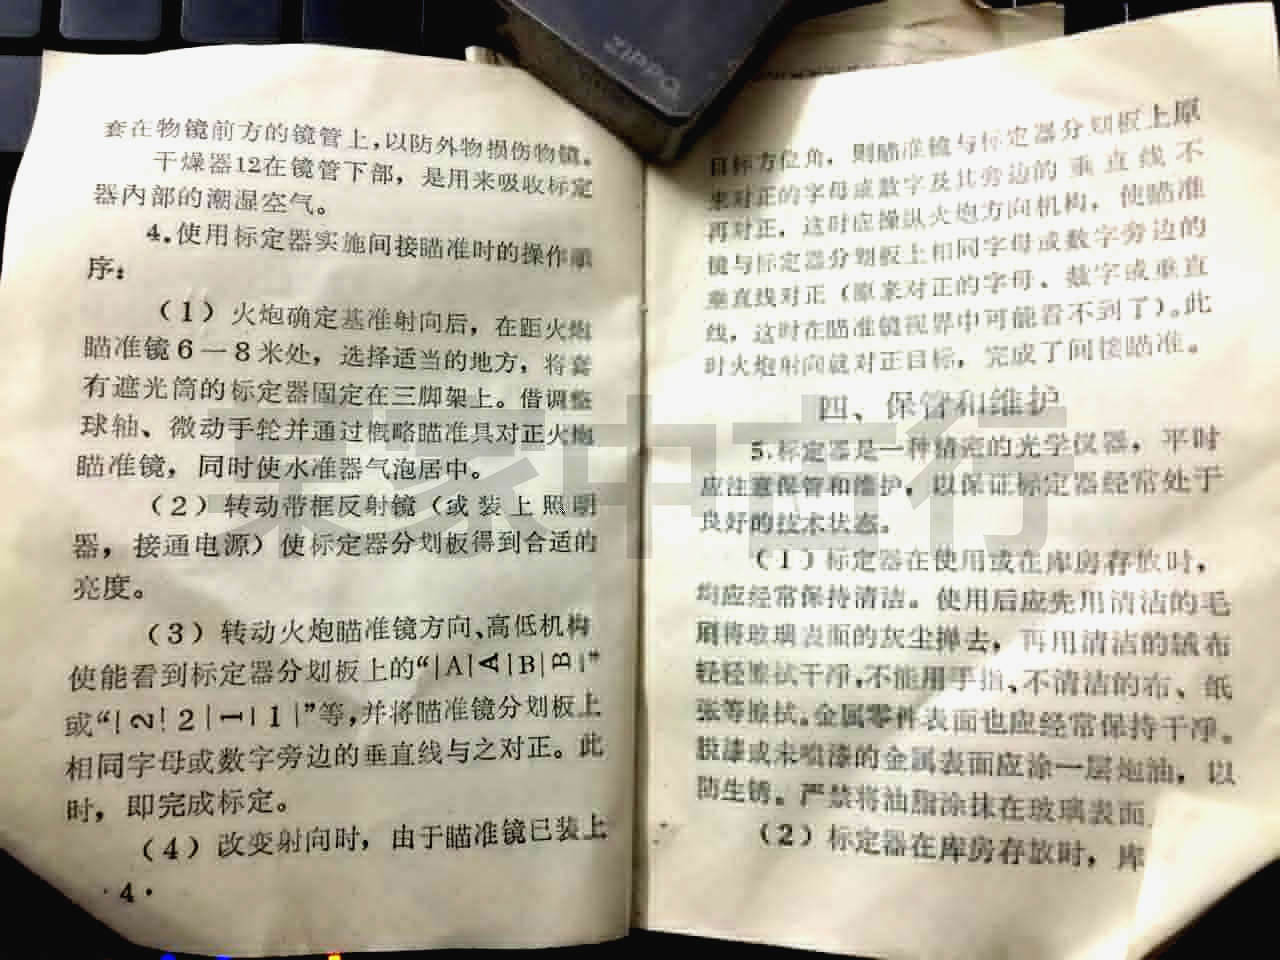 ZIPPO
套在物镜前方的镜管上,以防外物损伤物镜。
干燥器12在镜管下部，是用来吸收标定
器内部的潮湿空气。
4.使用标定器实施间接瞄准时的操作顺
序：
（1）火炮确定基准射向后，在距火炮
瞄准镜6—8米处，选择适当的地方，将套
有遮光筒的标定器固定在三脚架上。借调整
球轴、微动手轮并通过概略瞄准具对正火炮
瞄准镜，同时使水准器气泡居中。
（2）转动带框反射镜（或装上照明
器，接通电源）使标定器分划板得到合适的
亮度。
（3）转动火炮瞄准镜方向、高低机构
使能看到标定器分划板上的“|A|A|B|B|”
或“|2|2|1|1|”等,并将瞄准镜分划板上
相同字母或数字旁边的垂直线与之对正。此
时，即完成标定。
（4）改变射向时，由于瞄准镜已装上
·4·
目标方位角，则瞄准镜与标定器分划板上原
来对正的字母或数字及其旁边的垂直线不
再对正，这时应操纵火炮方向机构，使瞄准
镜与标定器分划板上相同字母或数字旁边的
垂直线对正（原来对正的字母、数字或垂直
线，这时在瞄准镜视界中可能看不到了）。此
时火炮射向就对正目标，完成了间接瞄准。
四、保管和维护
5.标定器是一种精密的光学仪器，平时
应注意保管和维护，以保证标定器经常处于
良好的技术状态。
（1）标定器在使用或在库房存放时，
均应经常保持清洁。使用后应先用清洁的毛
刷将玻璃表面的灰尘掸去，再用清洁的绒布
轻轻擦拭干净,不能用手指、不清洁的布、纸
张等擦拭。金属零件表面也应经常保持干净。
脱漆或未喷漆的金属表面应涂一层炮油，以
防生锈。严禁将油脂涂抹在玻璃表面
（2）标定器在库房存放时，库
某家中古行